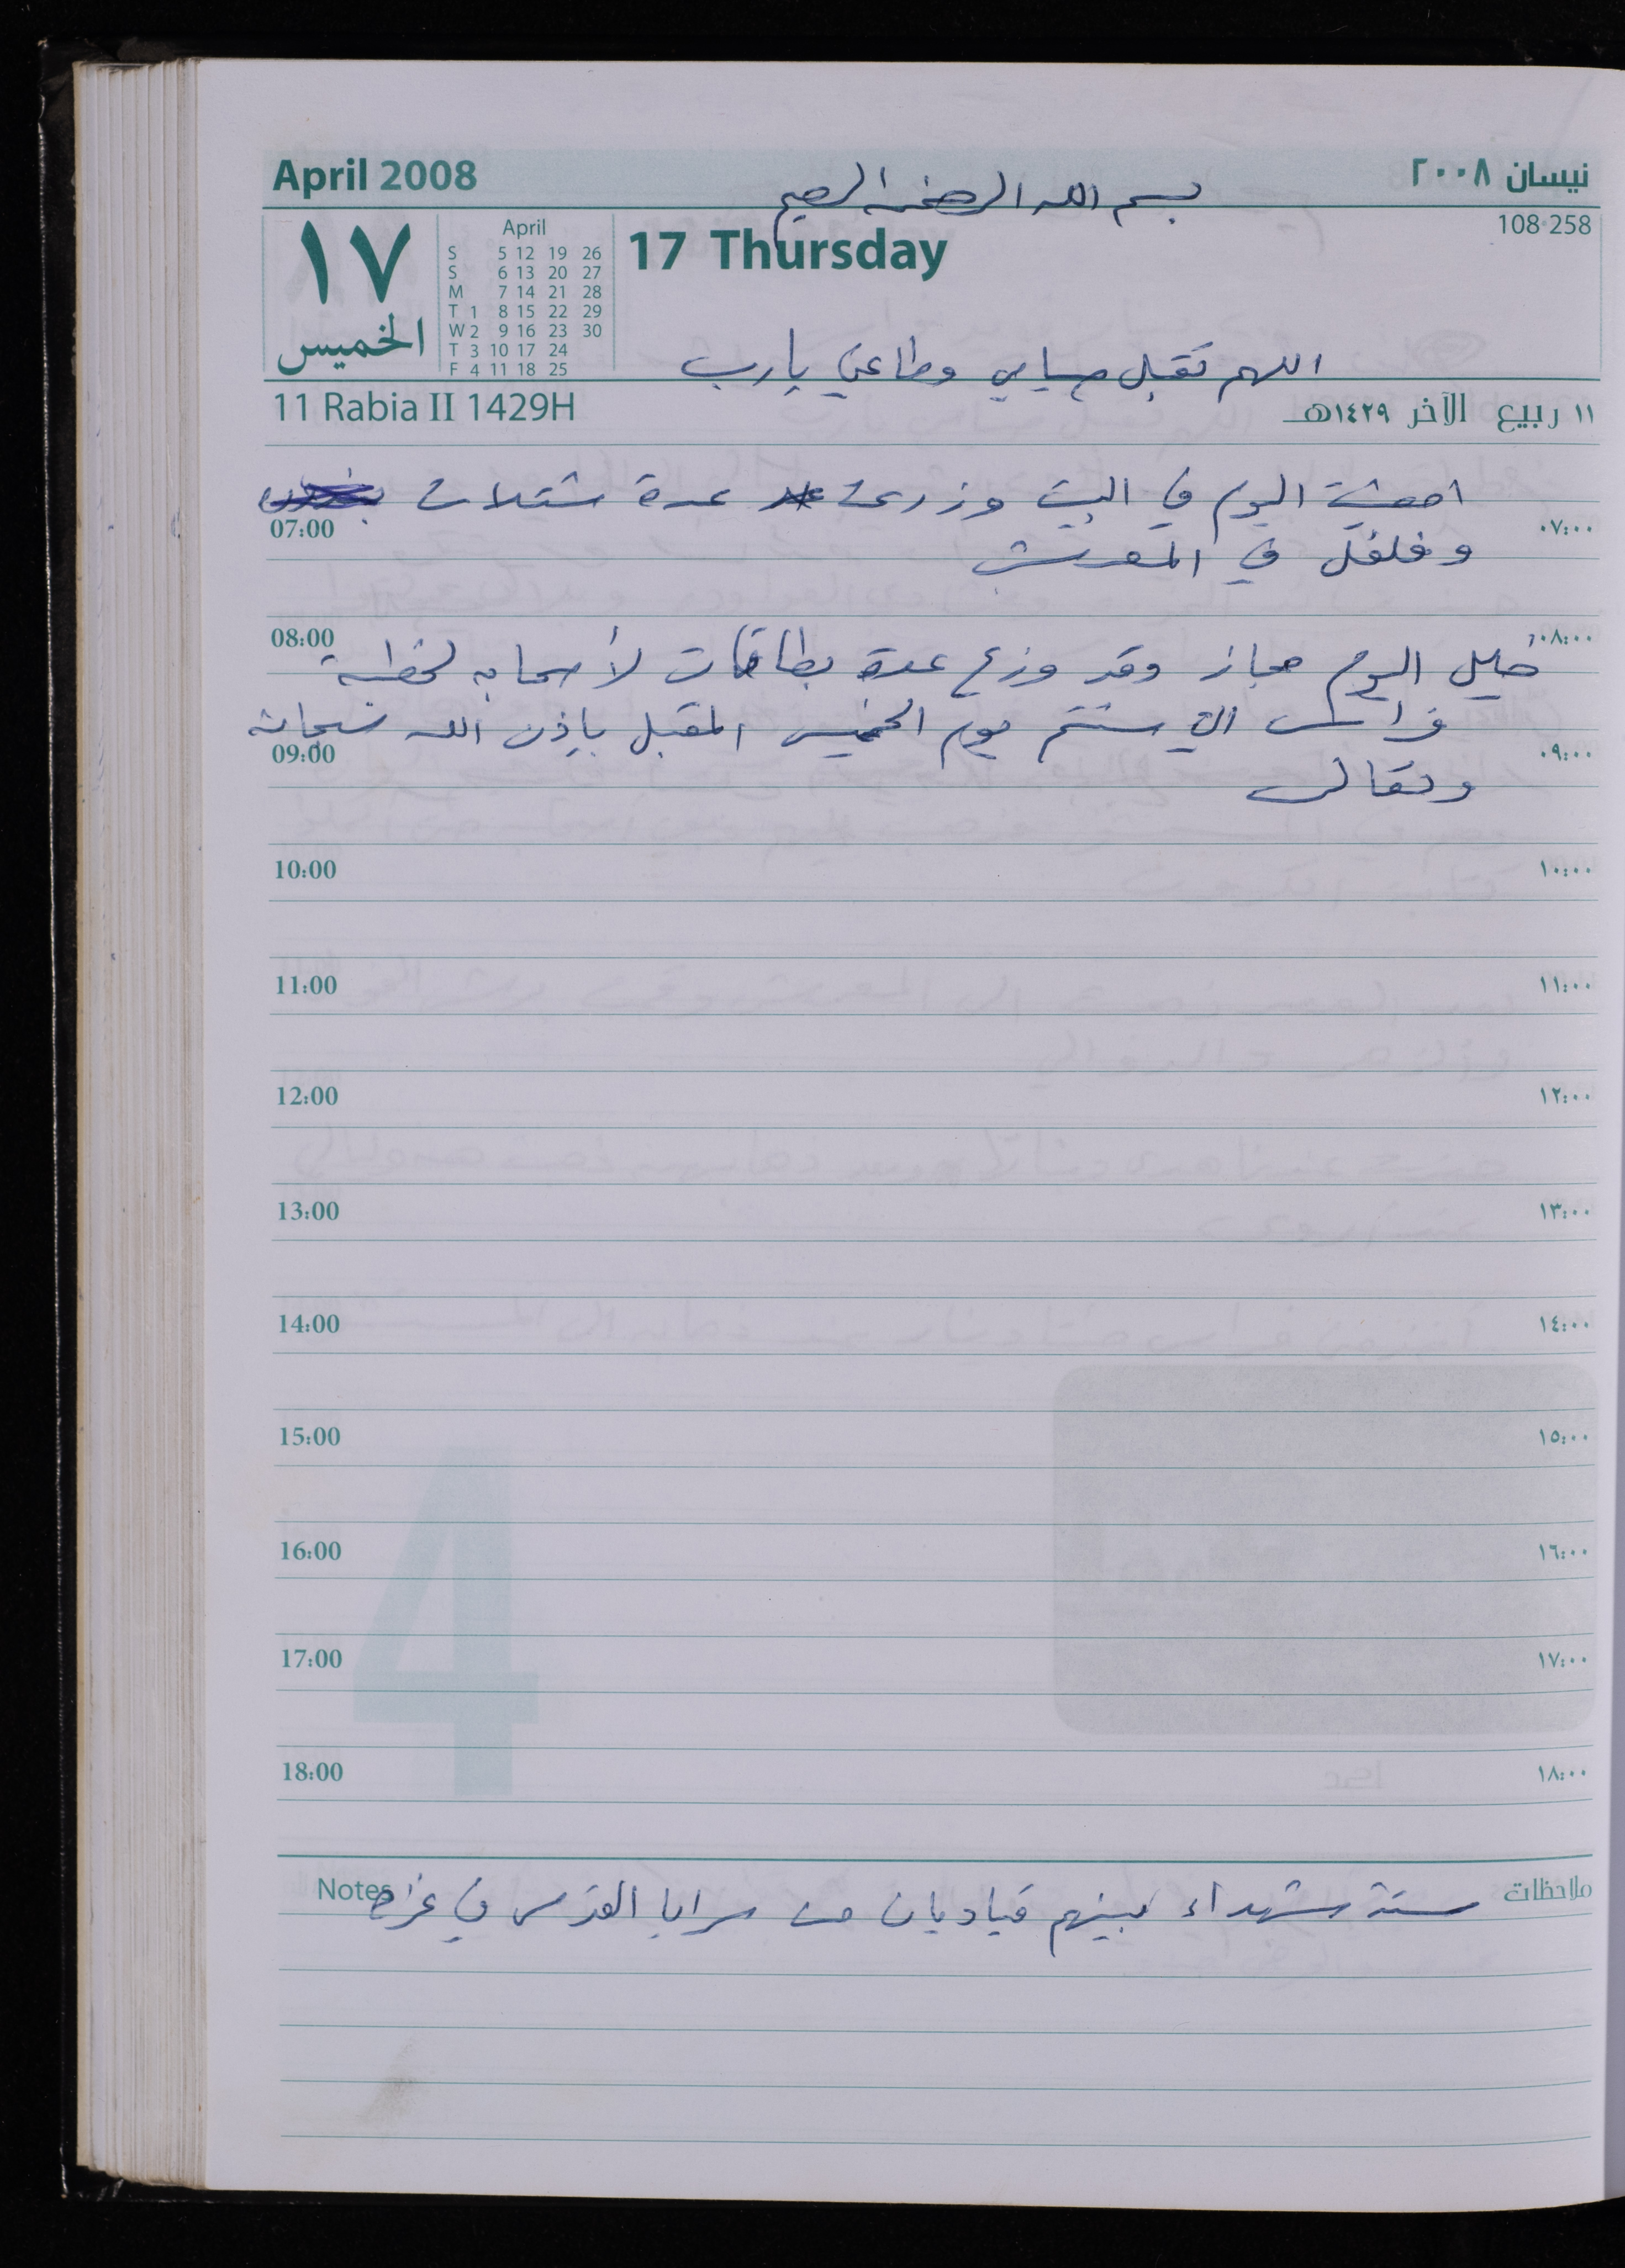 April 2008
بسم الله الرحمن الرحيم
نيسان ٢٠٠٨
108-258
١٧
الخميس
April
S 5 12 19 26
S 6 13 20 27
M 7 14 21 28
T 1 8 15 22 29
W 2 9 16 23 30
T 3 10 17 24
F 4 11 18 25
17 Thursday
اللهم تقبل صيامي وطاعتي يا رب
11 Rabia II 1429H
١١ ربيع الآخر ١٤٢٩هـ
امضيت اليوم في البيت وزرعت عدة شتلات
07:00 ٠٧:٠٠
وفلفل في المعرش
08:00 ٠٨:٠٠
خليل اليوم مجاز وقد وزع عدة بطاقات لأصحابه لخطبة
فراس التي ستتم يوم الخميس المقبل بإذن الله سبحانه
09:00 ٠٩:٠٠
وتعالى
10:00 ١٠:٠٠
11:00 ١١:٠٠
12:00 ١٢:٠٠
13:00 ١٣:٠٠
14:00 ١٤:٠٠
15:00 ١٥:٠٠
16:00 ١٦:٠٠
17:00 ١٧:٠٠
18:00 ١٨:٠٠
Notes ملاحظات
ستة شهداء بينهم قياديان من سرايا القدس في غزة